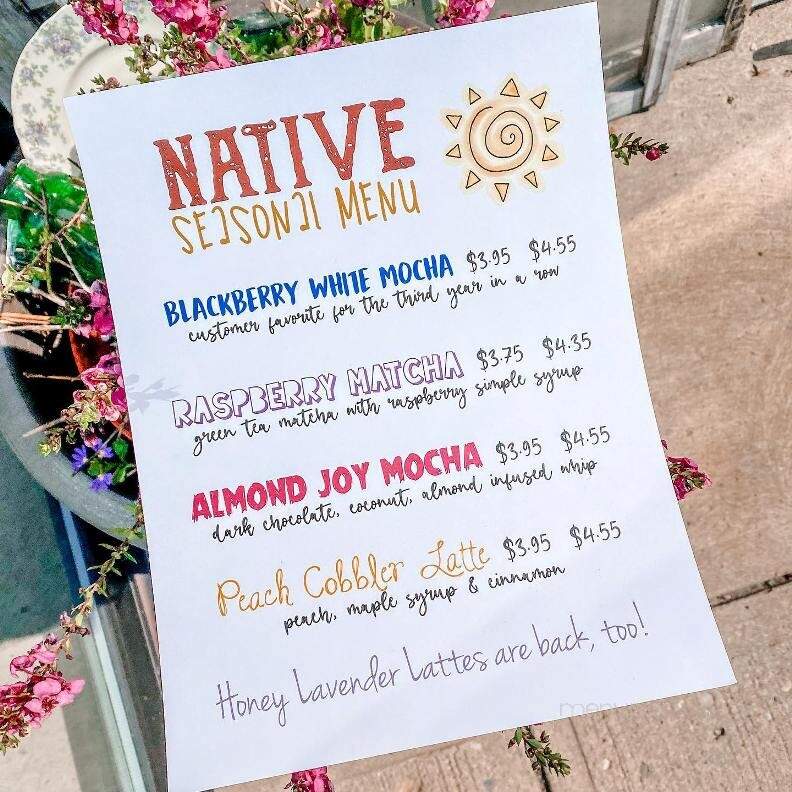 NATIVE
SEASONAL MENU
BLACKBERRY WHITE MOCHA $3.95 $4.55
customer favorite for the third year in a row
RASPBERRY MATCHA $3.75 $4.35
green tea matcha with raspberry simple syrup
ALMOND JOY MOCHA $3.95 $4.55
dark chocolate, coconut, almond infused whip
Peach Cobbler Latte $3.95 $4.55
peach, maple syrup & cinnamon
Honey Lavender Lattes are back, too!